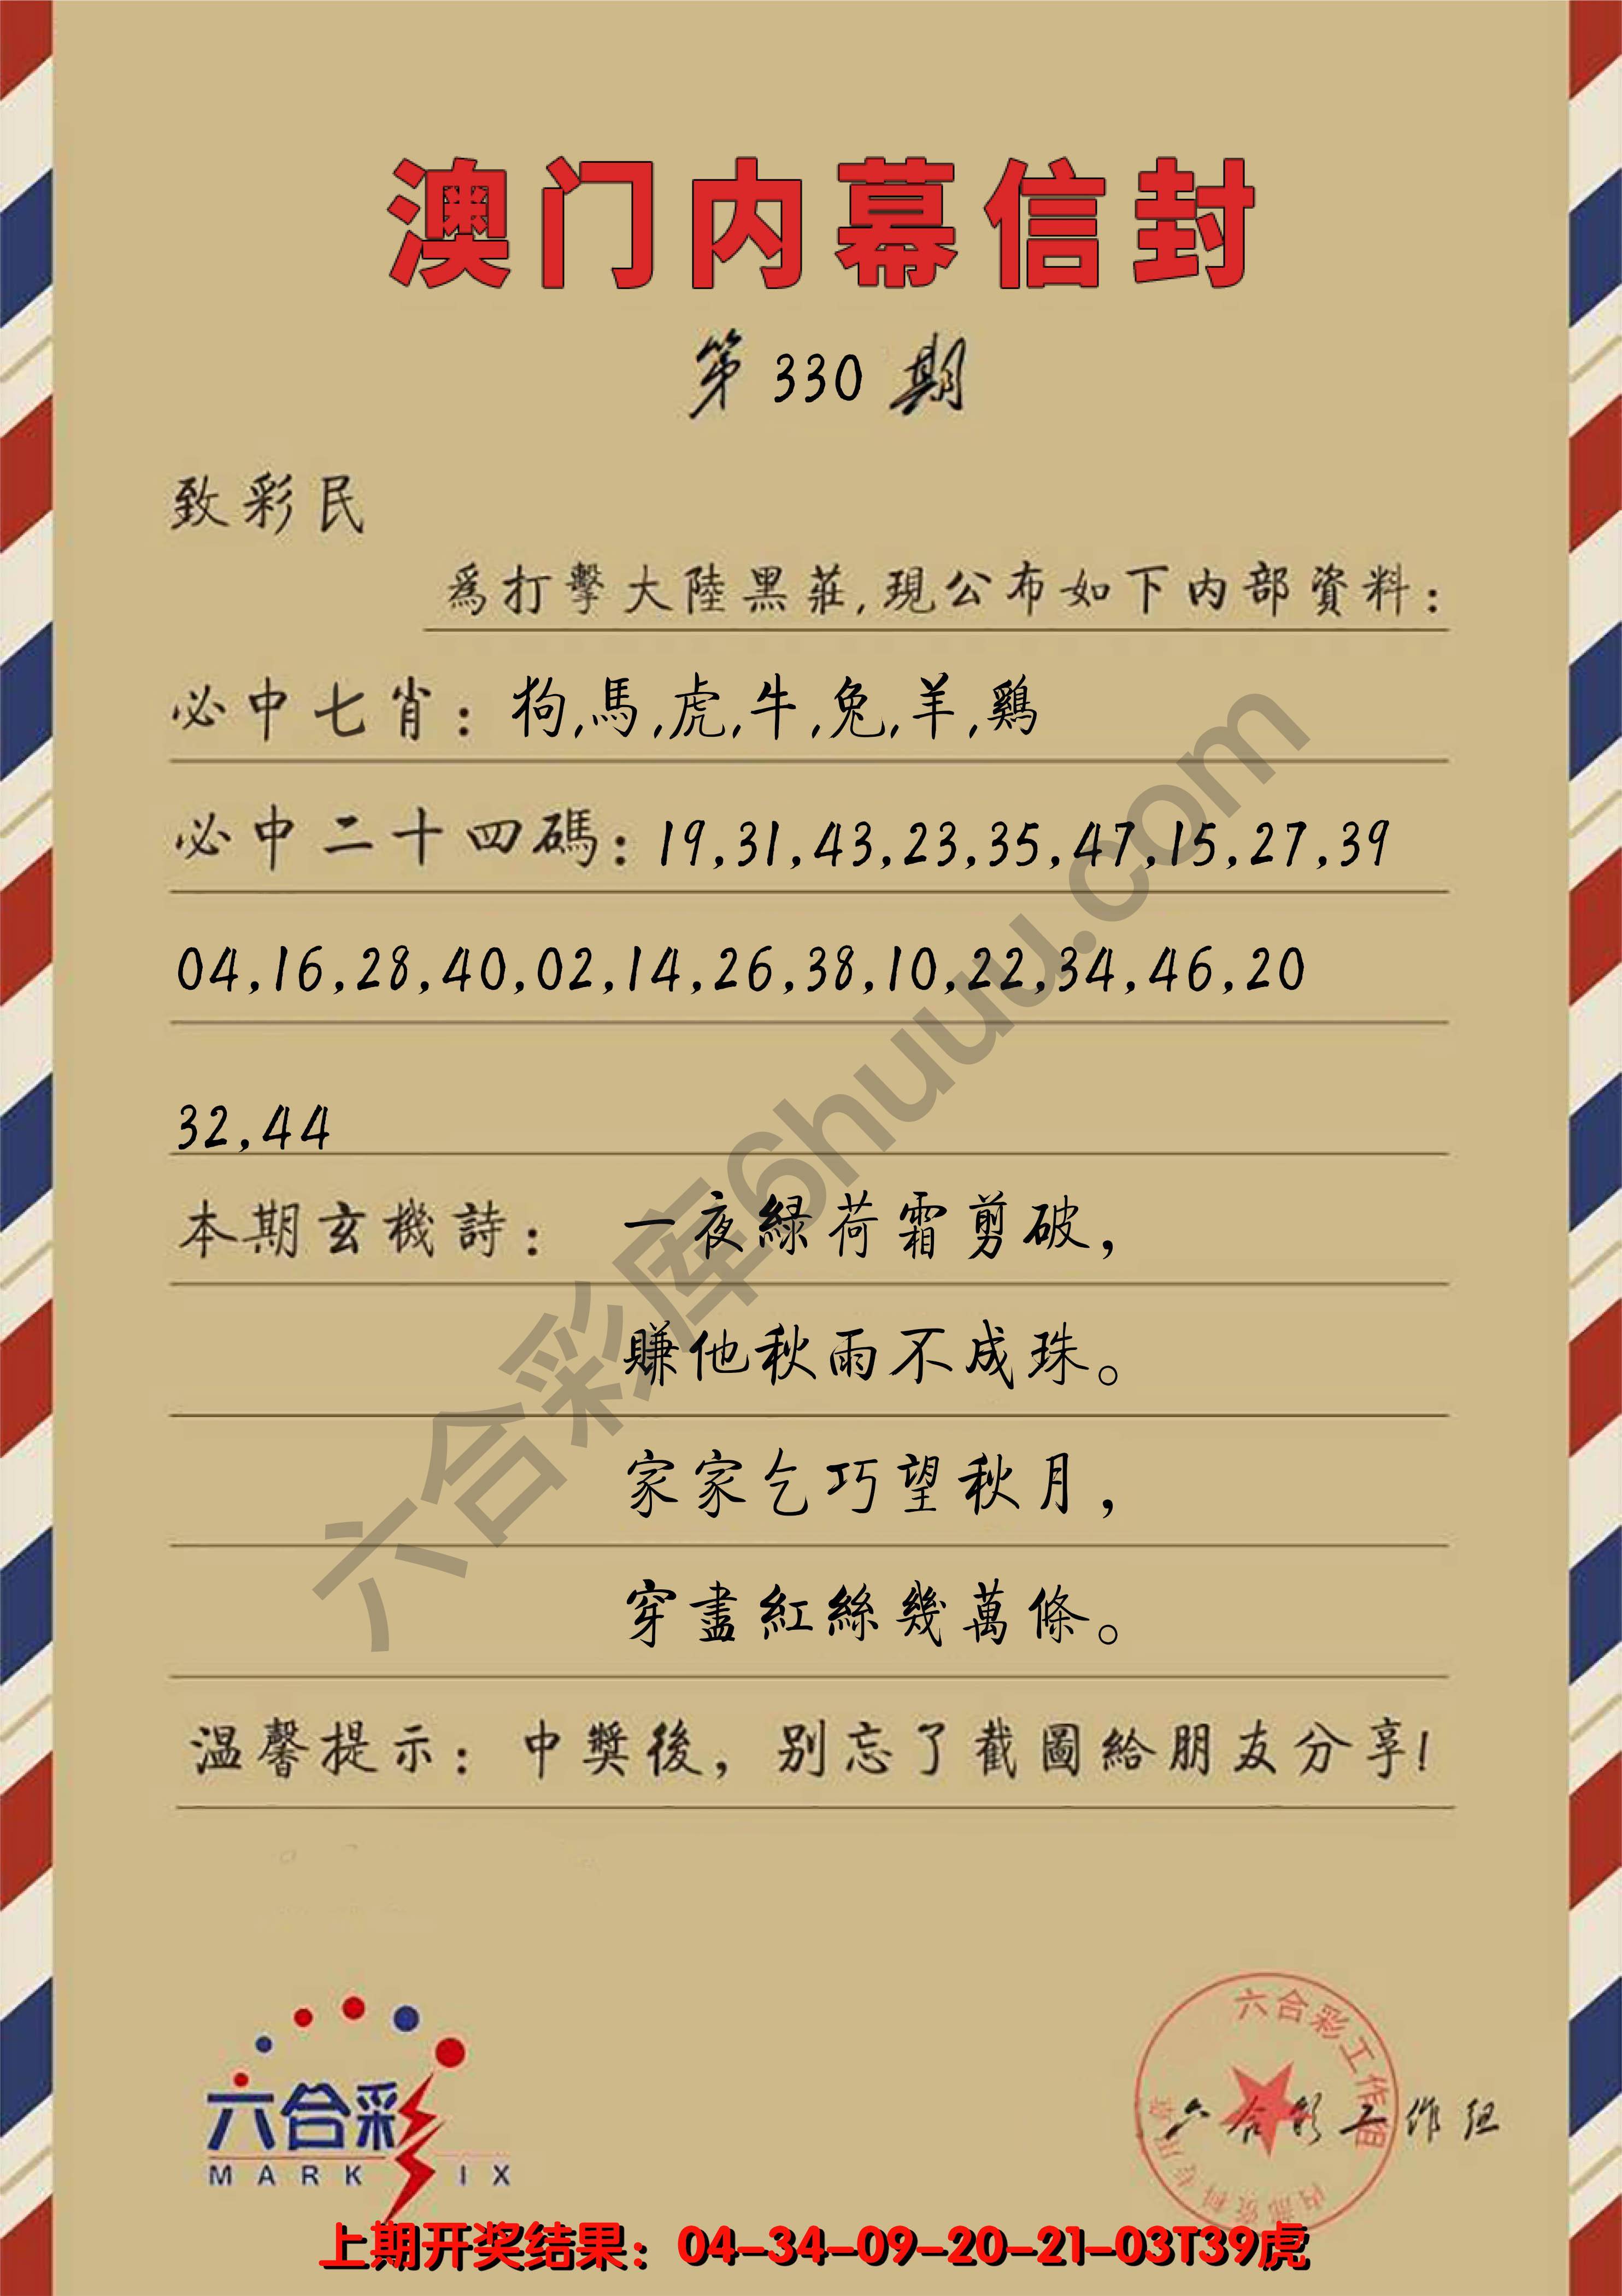 澳门内幕信封
第 330 期
致彩民
爲打擊大陸黑莊,現公布如下内部資料:
必中七肖: 狗,馬,虎,牛,兔,羊,鷄
必中二十四碼: 19,31,43,23,35,47,15,27,39
04,16,28,40,02,14,26,38,10,22,34,46,20
32,44
本期玄機詩: 一夜緑荷霜剪破,
賺他秋雨不成珠。
家家乞巧望秋月,
穿盡紅絲幾萬條。
温馨提示: 中獎後, 别忘了截圖給朋友分享!
六合彩库6huuu.com
六合彩
MARK IX
六合彩工作组
内部资料专用章
六合彩工作组
上期开奖结果: 04-34-09-20-21-03T39虎